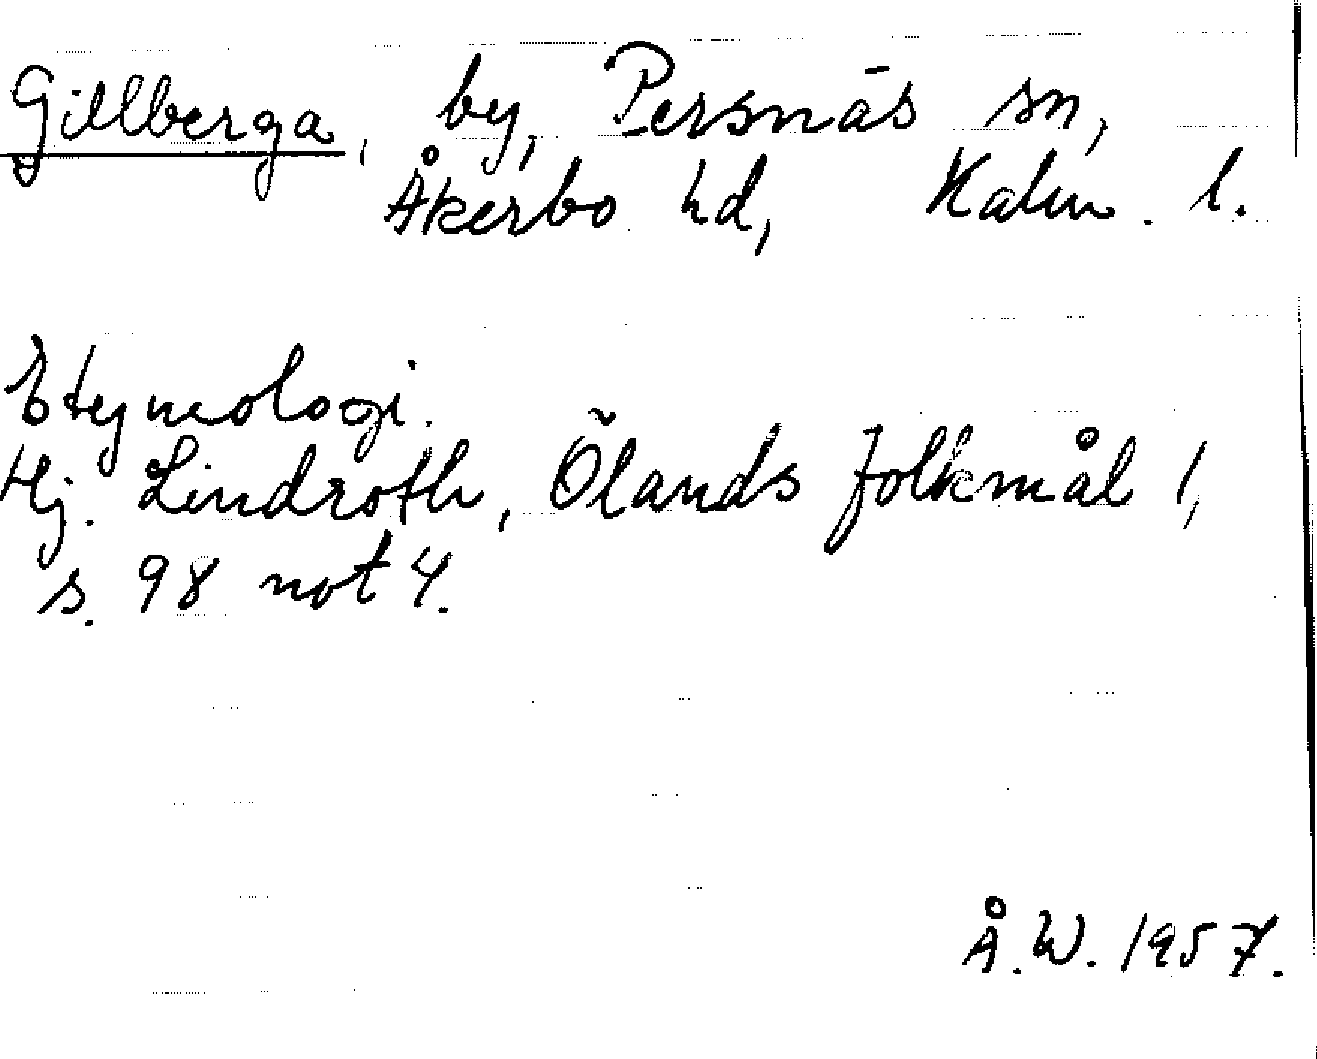 Gillberga, by, Persnäs sn,
Åkerbo hd, Kalm. l.
Etymologi.
Hj. Lindroth, Ölands folkmål 1,
s. 98 not 4.
Å.W. 1957.